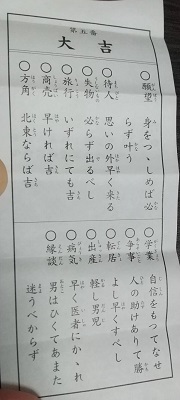 第五番
大吉
○願望 身をつゝしめば必
らず叶う
○待人 思いの外早く来る
○失物 必らず出るべし
○旅行 いずれにても吉
○商売 早ければ吉
○方角 北東ならば吉
○学業 自信をもつてなせ
○争事 人の助けありて勝
○転居 よし早くすべし
○出産 軽し男児
○病気 早く医者にかゝれ
○縁談 男はひくてあまた
迷うべからず